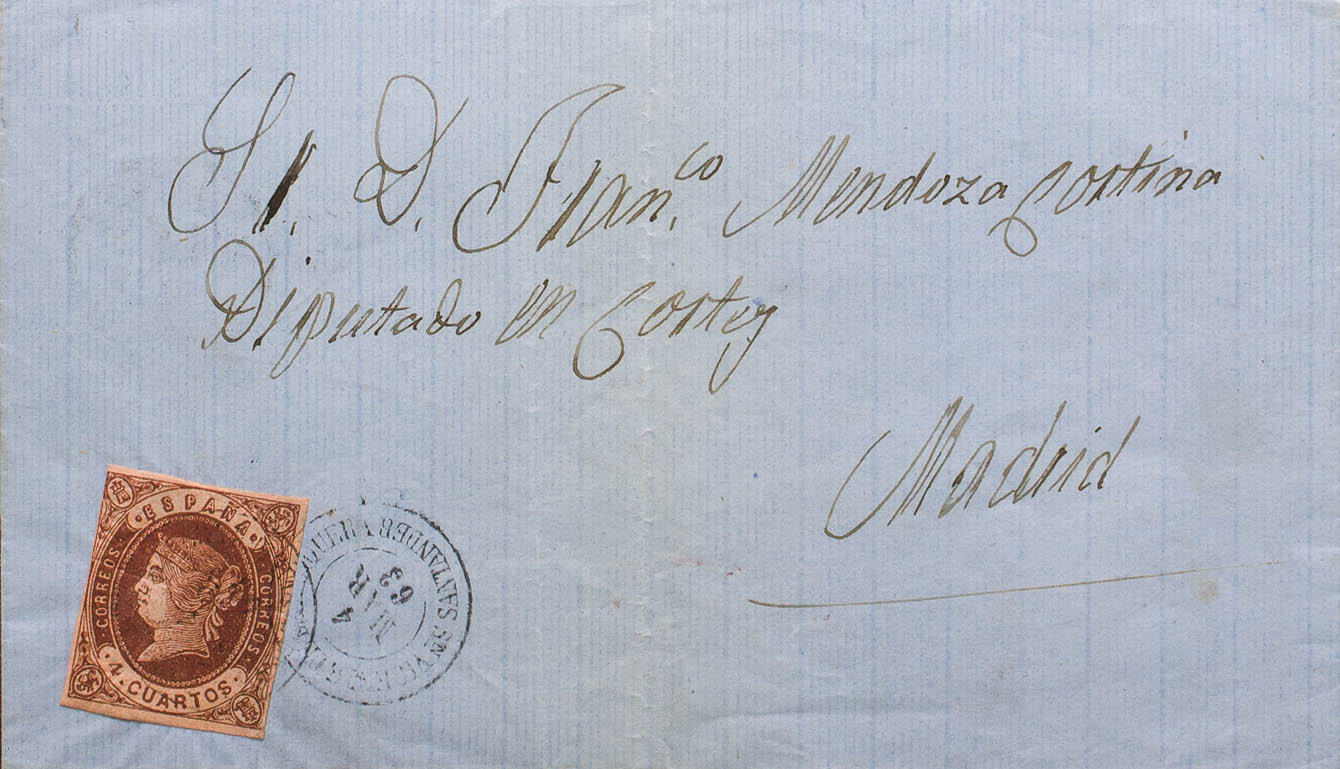 Sr. D. Fran.co Mendoza Cortina
Diputado en Cortes
Madrid
ESPAÑA
CORREOS
CORREOS
4 CUARTOS
4
MAR
63
SANTANDER